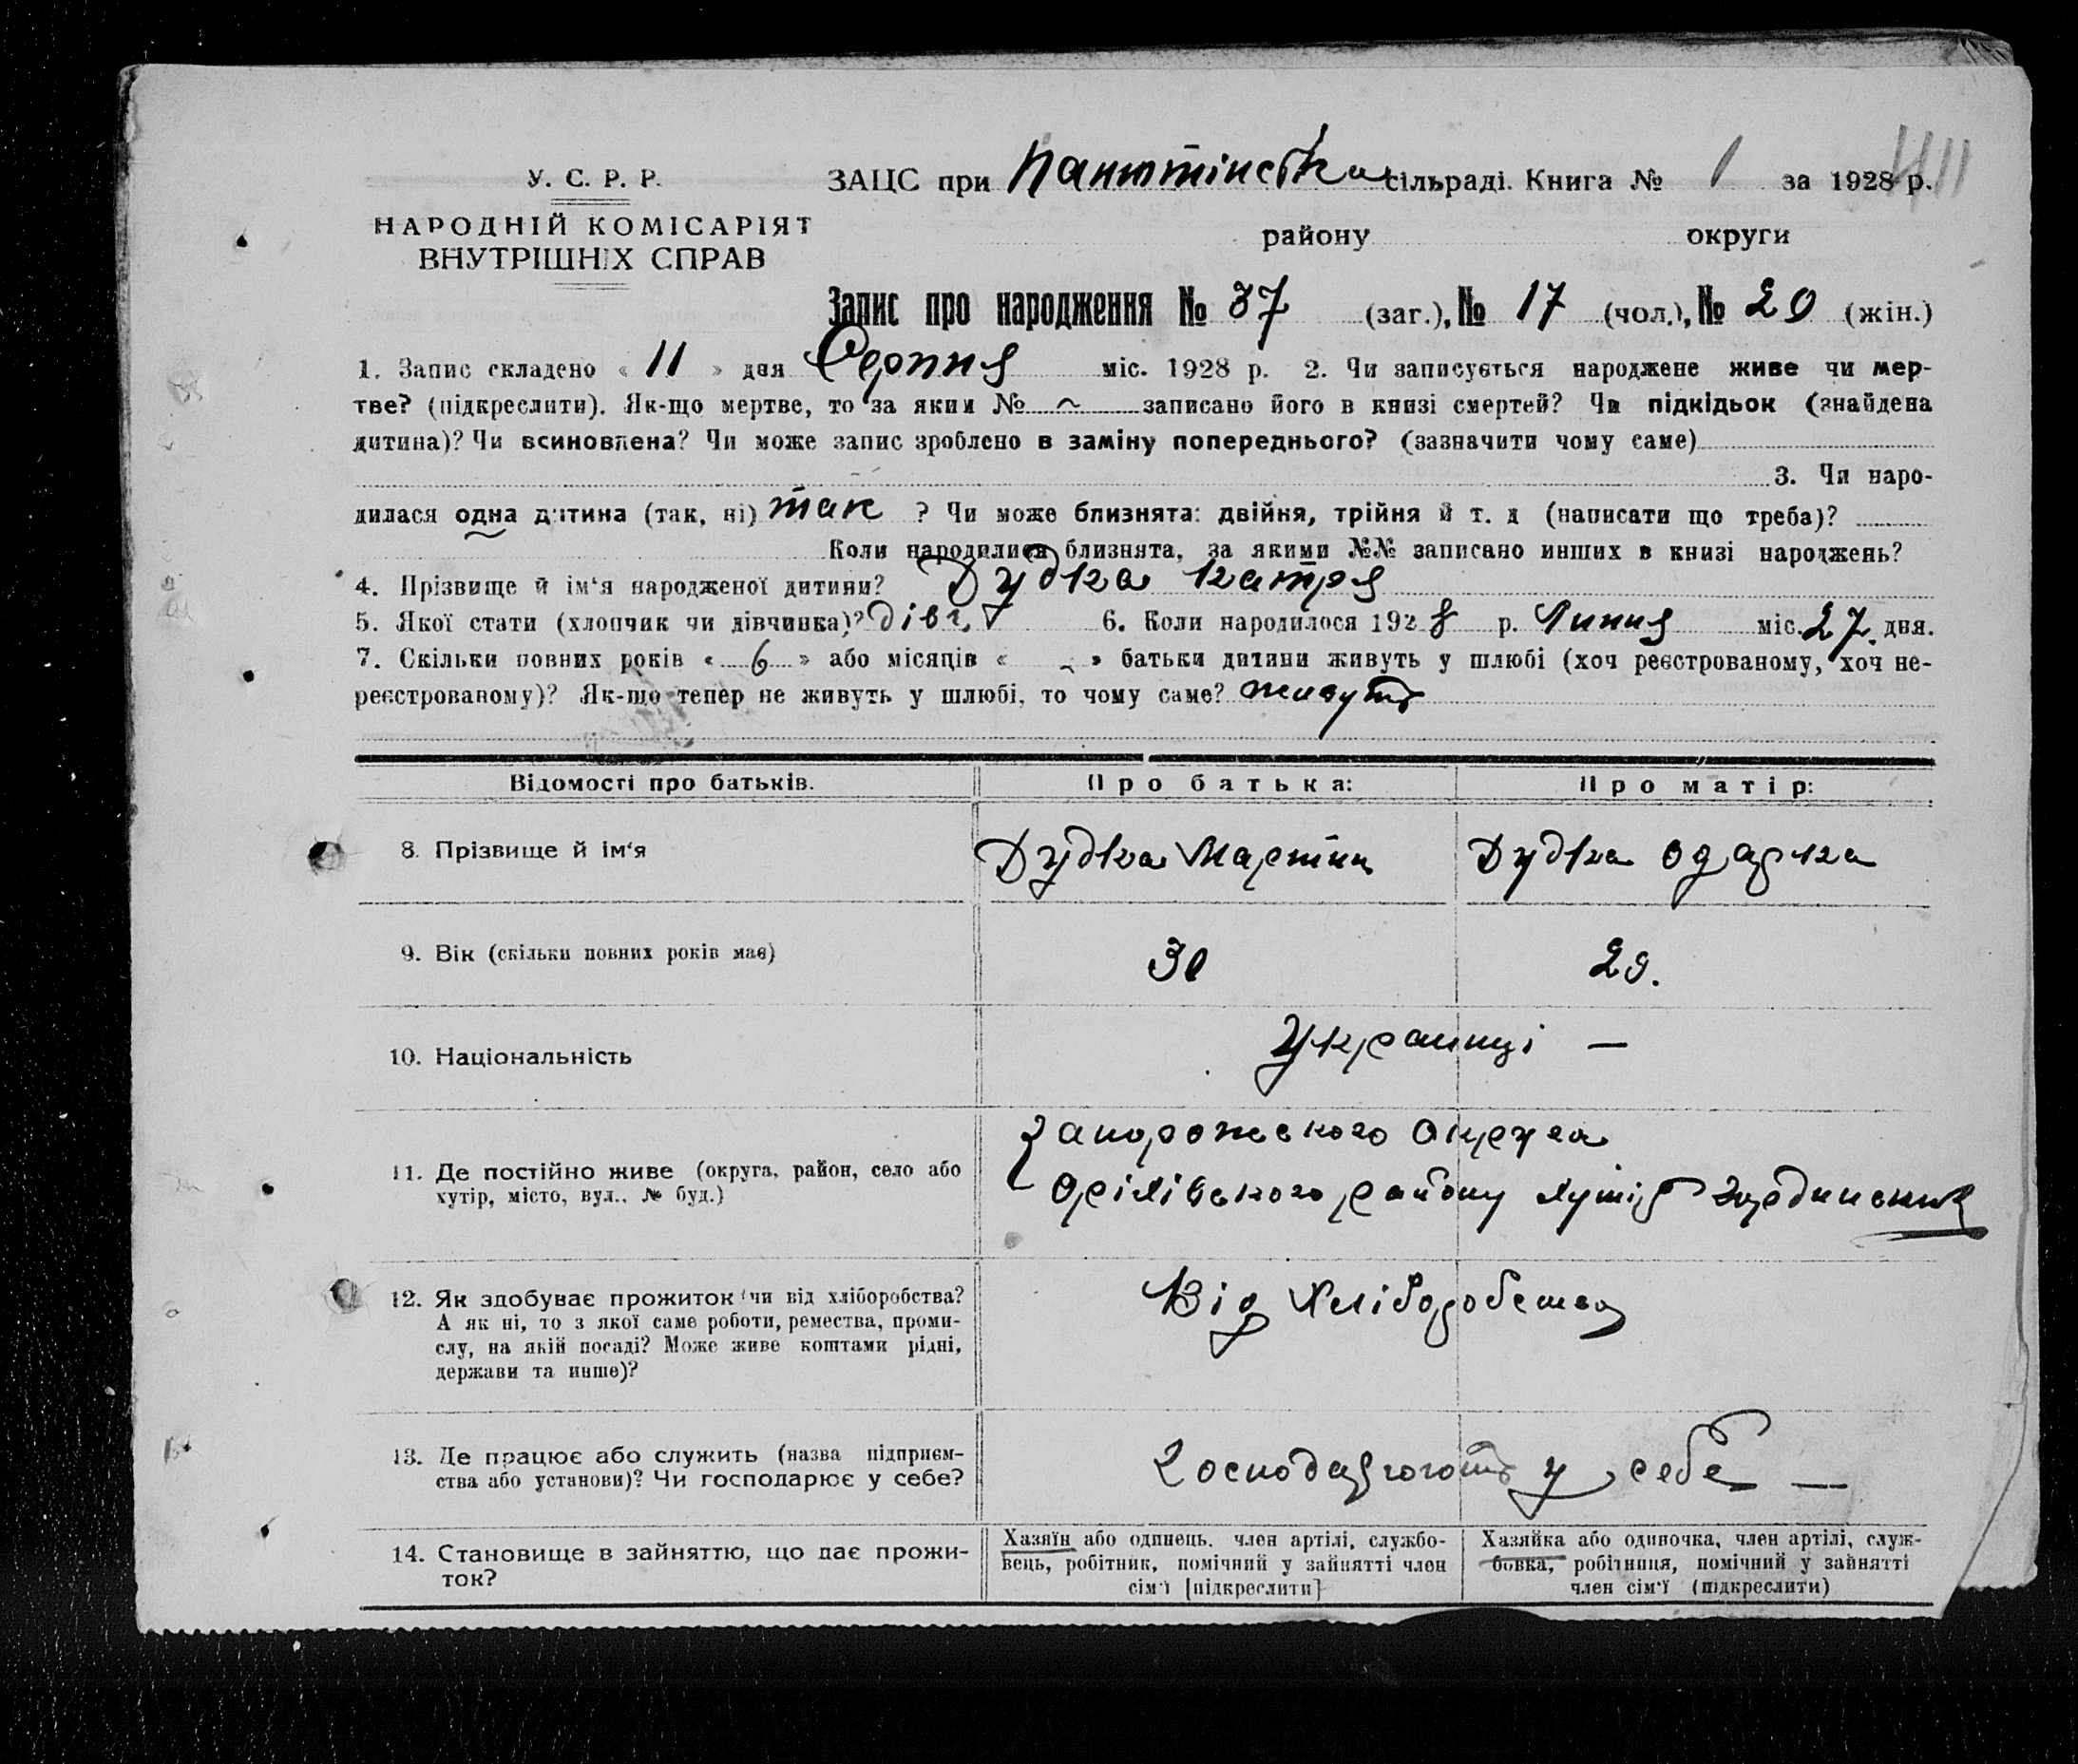 У. С. Р. Р.
НАРОДНІЙ КОМІСАРІЯТ
ВНУТРІШНІХ СПРАВ
ЗАЦС при сільраді. Книга № 1 за 1928 р.
району округи
Запис про народження № 37 (заг.), № 17 (чол.), № 20 (жін.)
1. Запис складено « 11 » дня Серпня міс. 1928 р. 2. Чи записується народжене живе чи мер-
тве? (підкреслити). Як-що мертве, то за яким № ~ записано його в книзі смертей? Чи підкідьок (знайдена
дитина)? Чи всиновлена? Чи може запис зроблено в заміну попереднього? (зазначити чому саме)
3. Чи наро-
дилася одна дитина (так, ні) так ? Чи може близнята: двійня, трійня й т. д (написати що треба)?
Коли народилися близнята, за якими №№ записано инших в книзі народжень?
4. Прізвище й ім‘я народженої дитини? Дудка Катря
5. Якої стати (хлопчик чи дівчинка)? дівч. 6. Коли народилося 1928 р. Липня міс. 27 дня.
7. Скільки повних років « 6 » або місяців « ~ » батьки дитини живуть у шлюбі (хоч реєстрованому, хоч не-
реєстрованому)? Як-що тепер не живуть у шлюбі, то чому саме? живуть
Відомості про батьків. Про батька: Про матір:
8. Прізвище й ім‘я Дудка Мартин Дудка Одарка
9. Вік (скільки повних років має) 30 29.
10. Національність Украинці —
11. Де постійно живе (округа, район, село або
хутір, місто, вул., № буд.)
Запорожського Округа
району хутір
12. Як здобуває прожиток (чи від хліборобства?
А як ні, то з якої саме роботи, ремества, проми-
слу, на якій посаді? Може живе коштами рідні,
держави та инше)?
Від Хліборобства
13. Де працює або служить (назва підприєм-
ства або установи)? Чи господарює у себе?
Господарюють у себе —
14. Становище в зайняттю, що дає прожи-
ток?
Хазяїн або одинець, член артілі, службо-
вець, робітник, помічний у зайнятті член
сім‘ї [підкреслити]
Хазяйка або одиночка, член артілі, служ-
бовка, робітниця, помічний у зайнятті
член сім‘ї (підкреслити)